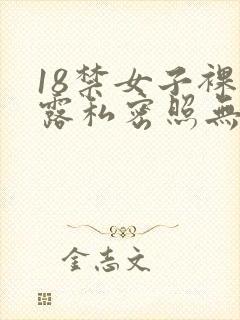 18禁女子裸
露私密照無
金志文